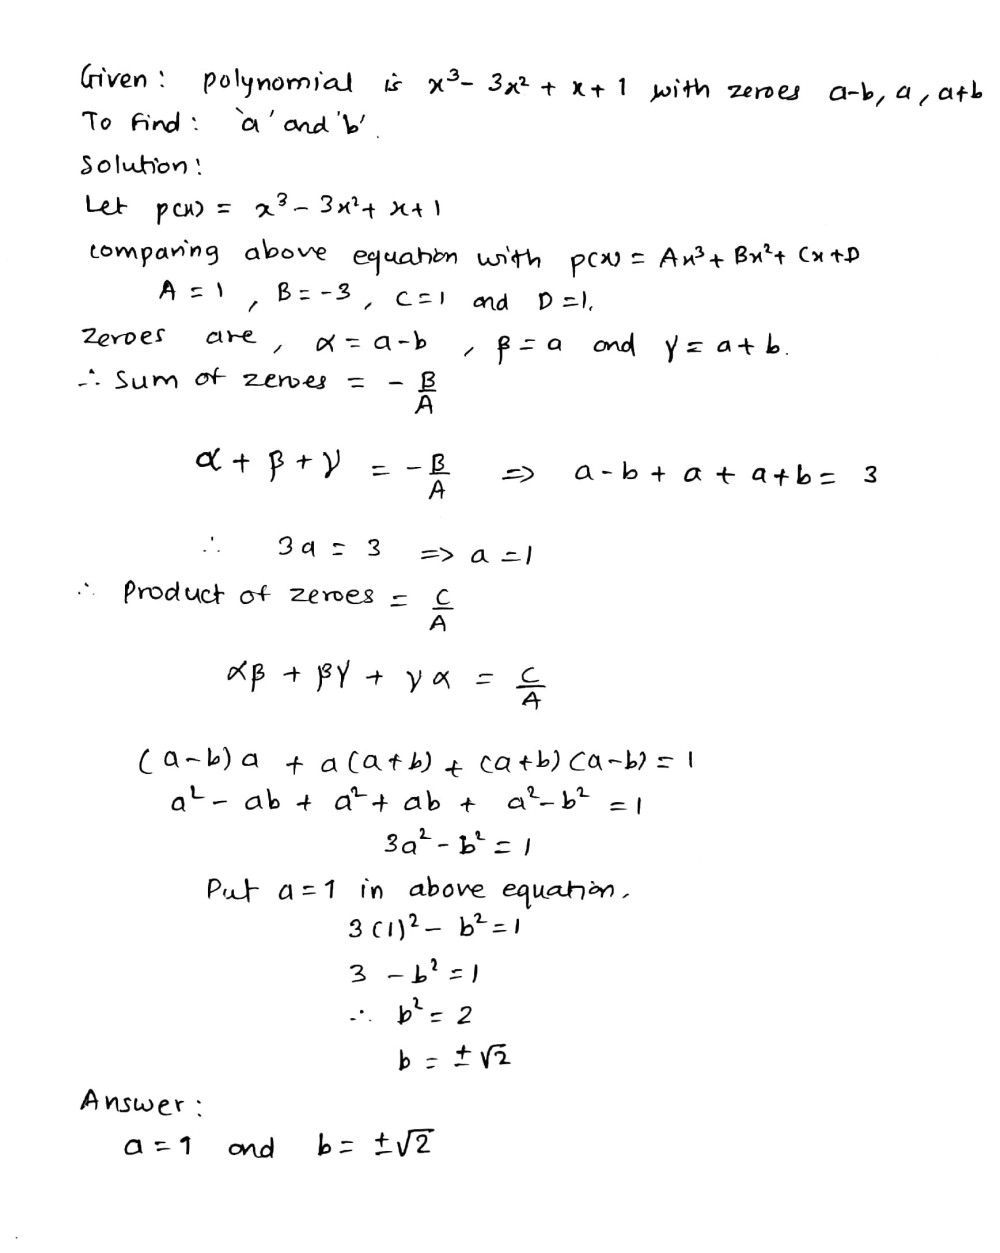 Given : polynomial is x³- 3x² + x + 1 with zeroes a-b, a, a+b
To Find : 'a' and 'b'.
Solution :
Let p(x) = x³ - 3x² + x + 1
comparing above equation with p(x) = Ax³ + Bx² + Cx + D
A = 1 , B = -3 , C = 1 and D = 1.
Zeroes are , α = a-b , β = a and γ = a + b.
∴ Sum of zeroes = - B/A
α + β + γ = - B/A => a - b + a + a + b = 3
∴ 3a = 3 => a = 1
∴ Product of zeroes = C/A
αβ + βγ + γα = C/A
(a-b)a + a(a+b) + (a+b)(a-b) = 1
a² - ab + a² + ab + a² - b² = 1
3a² - b² = 1
Put a = 1 in above equation.
3(1)² - b² = 1
3 - b² = 1
∴ b² = 2
b = ±√2
Answer :
a = 1 and b = ±√2